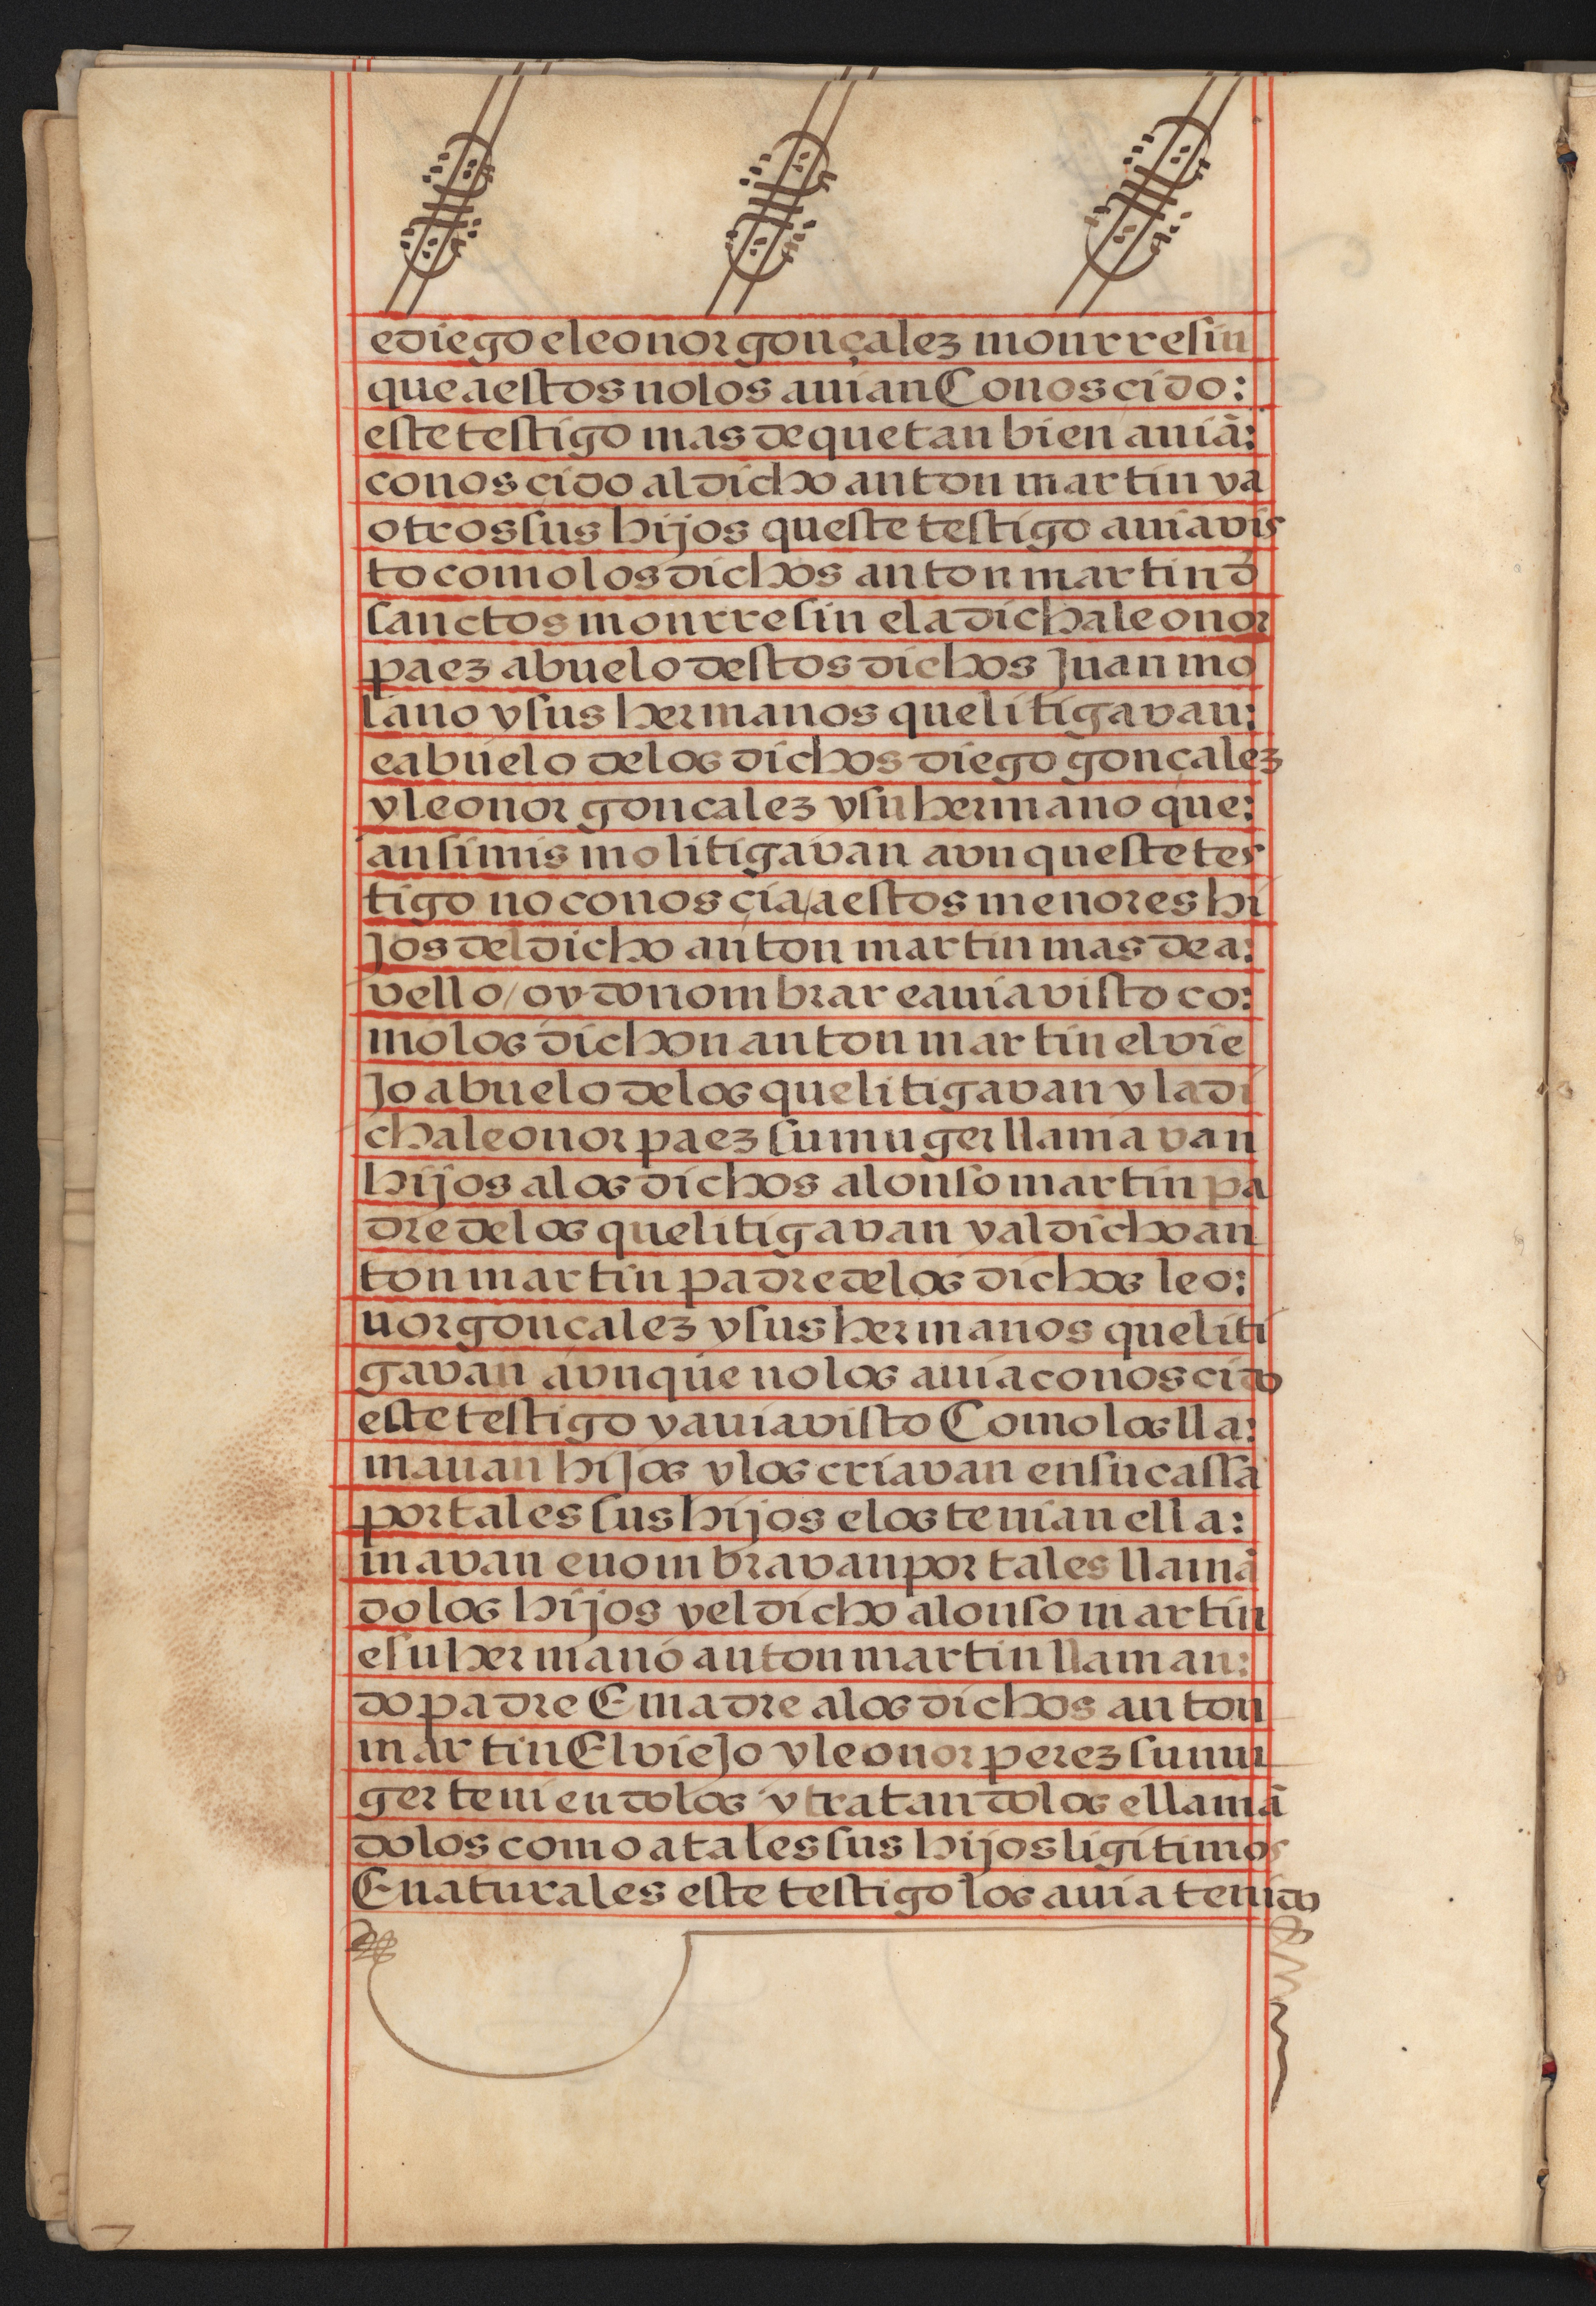 e diego e leonor gonçalez monrresin
que a estos no los auian Conosçido:
este testigo mas de que tan bien auiã:
conosçido al dicho anton martin y a
otros sus hijos queste testigo auia vis
to como los dichos anton martin d̃
sanctos monrresin e la dicha leonor
paez abuelo destos dichos Juan mo
lano y sus hermanos que litigavan:
e abuelo de los dichos diego gonçalez
y leonor goncalez y su hermano que:
ansimismo litigavan avnqueste tes
tigo no conosçia / a estos menores hi
Jos del dicho anton martin mas de a:
vello / oydo nombrar e auia visto co:
mo los dichon anton martin el vie
Jo abuelo de los que litigavan y la di
cha leonor paez su muger llamavan
hijos a los dichos alonso martin pa
dre de los que litigavan y al dicho an
ton martin padre de los dichos leo:
nor gonçalez y sus hermanos que liti
gavan avnque no los auia conoscido
este testigo y auia visto Como los lla:
mauan hiJos y los criavan en su cassa
por tales sus hijos e los tenian e lla:
mavan e nombravan por tales llamã
dolos hijos y el dicho alonso martin
e su hermano anton martin llaman:
do padre E madre a los dichos anton
martin El vieJo y leonor perez su mu
ger teniendolos y tratandolos e llamã
dolos como a tales sus hijos ligitimos
E naturales este testigo los auia tenido